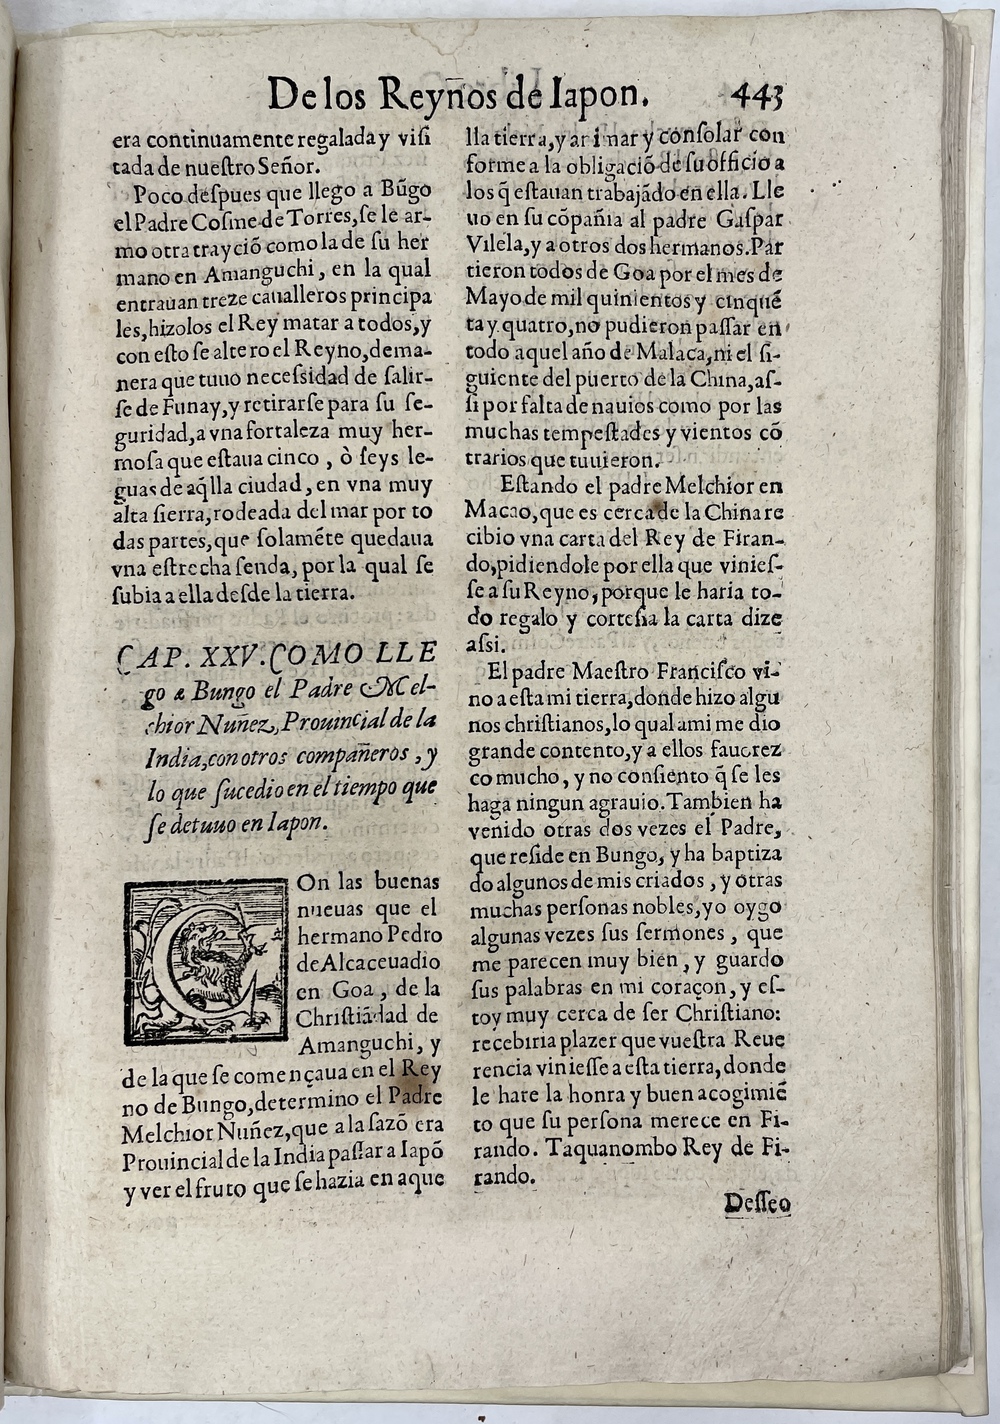 De los Reyños de Iapon. 443
era continuamente regalada y visi
tada de nuestro Señor.
Poco despues que llego a Bũgo
el Padre Cosme de Torres, se le ar-
mo otra trayciõ como la de su her
mano en Amanguchi, en la qual
entrauan treze caualleros principa
les, hizolos el Rey matar a todos, y
con esto se altero el Reyno, de ma-
nera que tuuo necessidad de salir-
se de Funay, y retirarse para su se-
guridad, a vna fortaleza muy her-
mosa que estaua cinco, ò seys le-
guas de aq̃lla ciudad, en vna muy
alta sierra, rodeada del mar por to
das partes, que solamẽte quedaua
vna estrecha senda, por la qual se
subia a ella desde la tierra.
CAP. XXV. COMO LLE
go a Bungo el Padre Mel-
chior Nuñez, Prouincial de la
India, con otros compañeros, y
lo que sucedio en el tiempo que
se detuuo en Iapon.
COn las buenas
nueuas que el
hermano Pedro
de Alcaceua dio
en Goa, de la
Christiãdad de
Amanguchi, y
de la que se començaua en el Rey
no de Bungo, determino el Padre
Melchior Nuñez, que a la sazõ era
Prouincial de la India passar a Iapõ
y ver el fruto que se hazia en aque
lla tierra, y ar i nar y consolar con
forme a la obligaciõ de su officio a
los q̃ estauan trabajãdo en ella. Lle
uo en su cõpañia al padre Gaspar
Vilela, y a otros dos hermanos. Par
tieron todos de Goa por el mes de
Mayo de mil quinientos y cinquẽ
ta y quatro, no pudieron passar en
todo aquel año de Malaca, ni el si-
guiente del puerto de la China, as-
si por falta de nauios como por las
muchas tempestades y vientos cõ
trarios que tuuieron.
Estando el padre Melchior en
Macao, que es cerca de la China re
cibio vna carta del Rey de Firan-
do, pidiendole por ella que vinies-
se a su Reyno, porque le haria to-
do regalo y cortesia la carta dize
assi.
El padre Maestro Francisco vi-
no a esta mi tierra, donde hizo algu
nos christianos, lo qual a mi me dio
grande contento, y a ellos fauorez
co mucho, y no consiento q̃ se les
haga ningun agrauio. Tambien ha
venido otras dos vezes el Padre,
que reside en Bungo, y ha baptiza
do algunos de mis criados, y otras
muchas personas nobles, yo oygo
algunas vezes sus sermones, que
me parecen muy bien, y guardo
sus palabras en mi coraçon, y es-
toy muy cerca de ser Christiano:
recebiria plazer que vuestra Reue
rencia viniesse a esta tierra, donde
le hare la honra y buen acogimiẽ
to que su persona merece en Fi-
rando. Taquanombo Rey de Fi-
rando.
Desseo